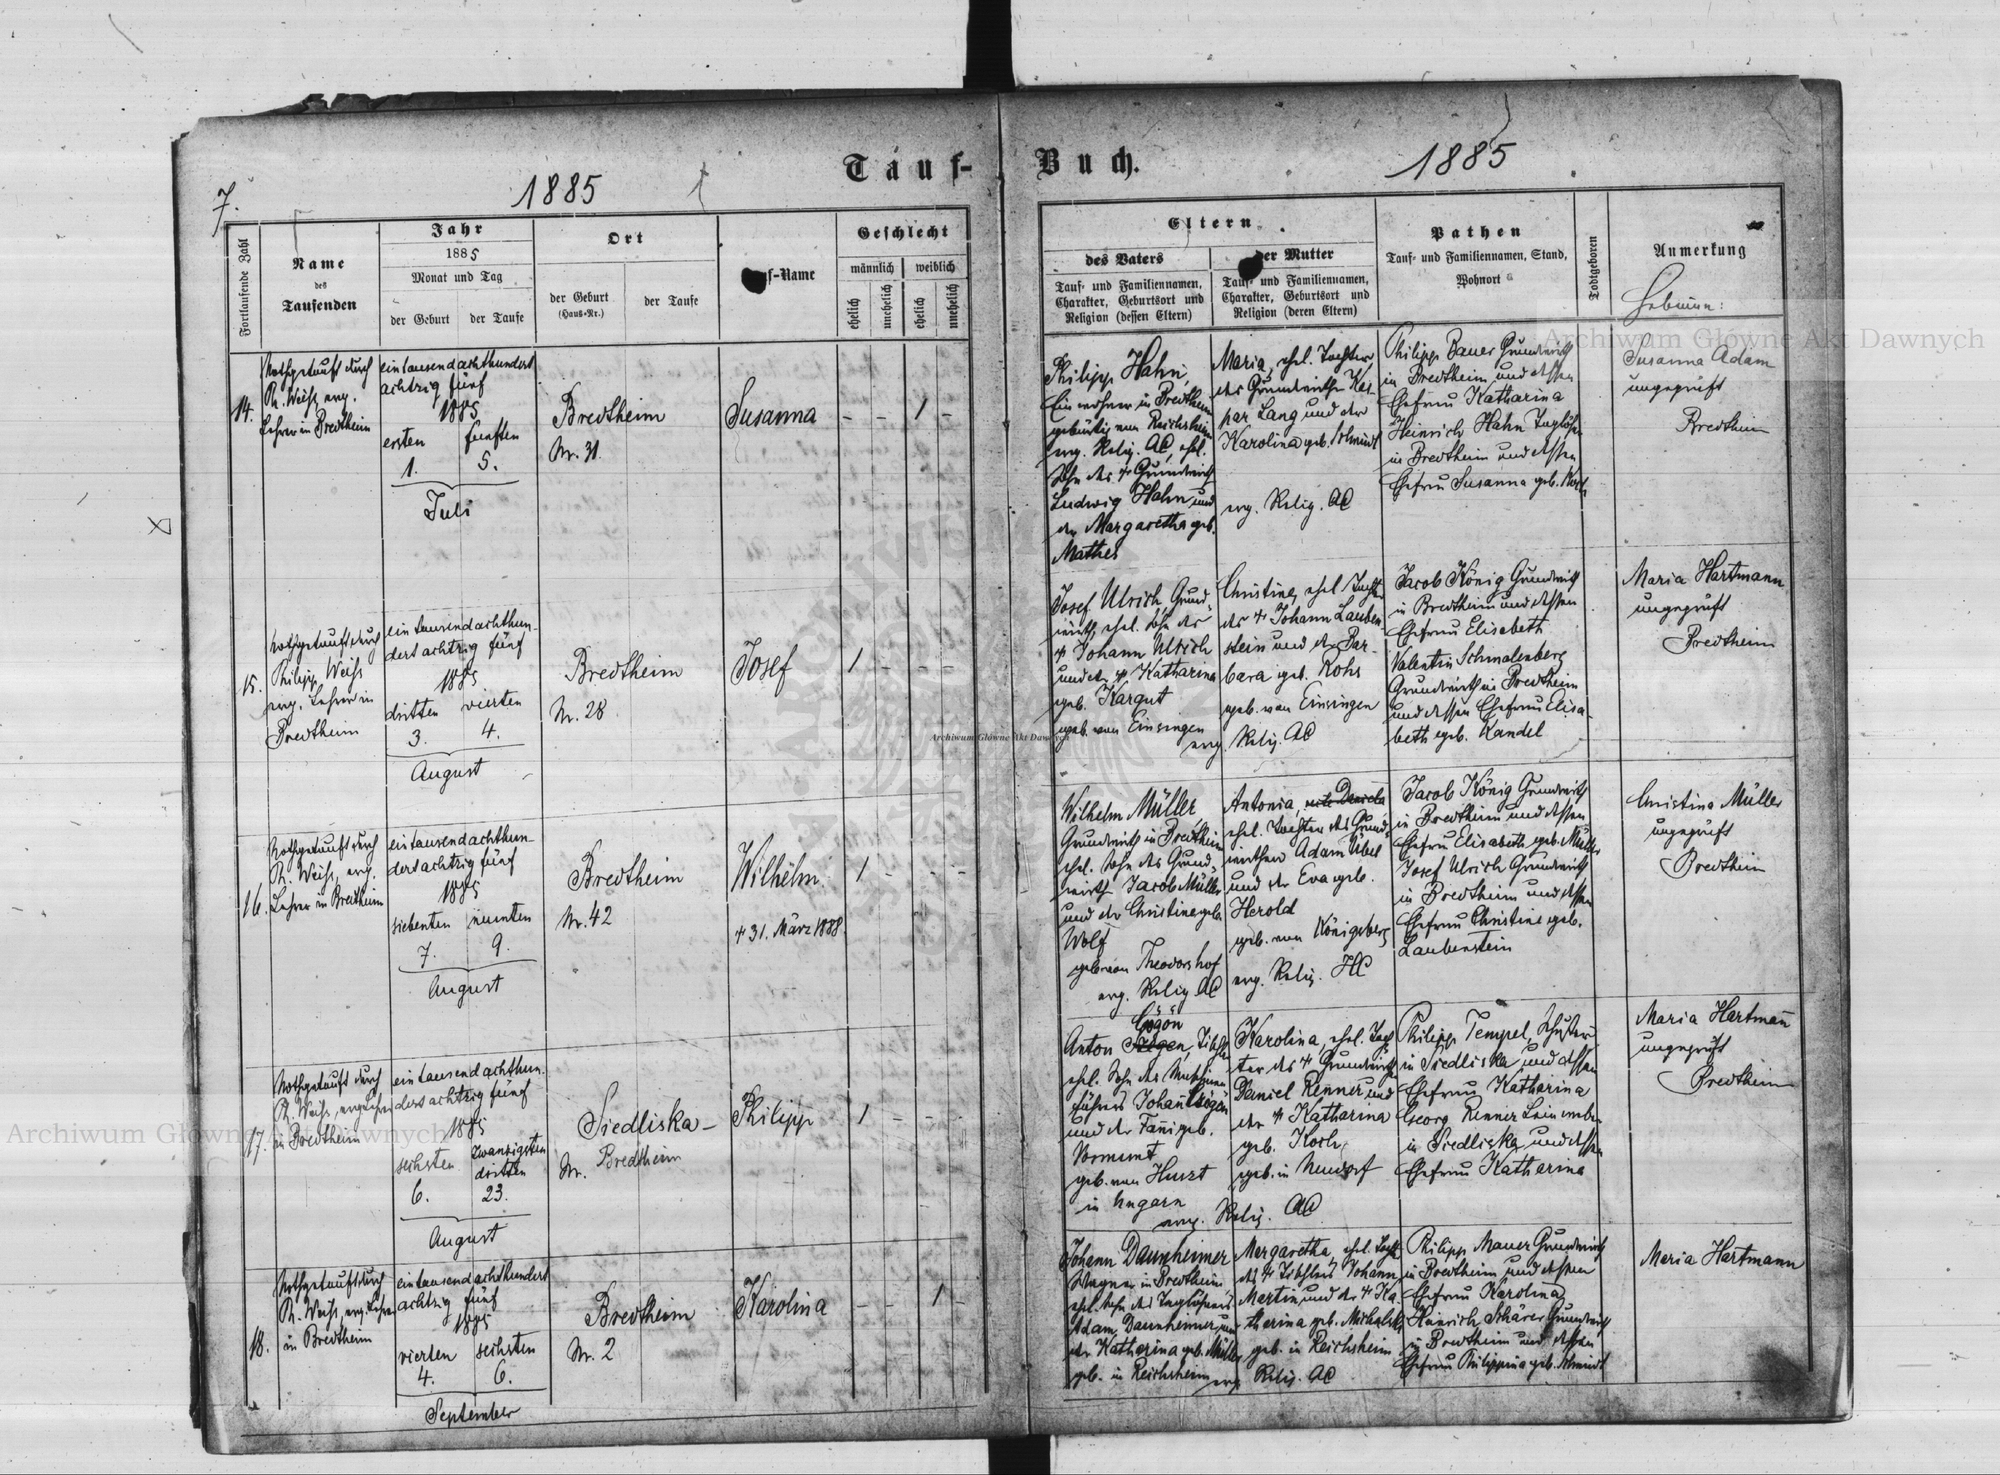 7.
1885
Tauf-
Buch.
1885
Fortlaufende Zahl
Name
des
Taufenden
Jahr
1885
Monat und Tag
der Geburt
der Taufe
Ort
der Geburt
(Haus-Nr.)
der Taufe
uf-Name
Geschlecht
männlich
weiblich
ehelich
unehelich
ehelich
unehelich
Eltern.
des Vaters
Tauf- und Familiennamen,
Charakter, Geburtsort und
Religion (dessen Eltern)
der Mutter
Tauf- und Familiennamen,
Charakter, Geburtsort und
Religion (deren Eltern)
Pathen
Tauf- und Familiennamen, Stand,
Wohnort
Todtgeboren
Anmerkung
Hebamme:
14.
Nothgetauft durch
Ph. Weiß, evg.
Lehrer in Bredtheim
eintausendachthundert
achtzig fünf
1885
ersten
1.
fünften
5.
Juli
Bredtheim
Nr. 31
Susanna
- - 1 -
Philipp Hahn,
Einwohner in Bredtheim
gebürtig von Reichsheim
evg. Relig. AC, ehel.
Sohn des † Grundwirth
Ludwig Hahn und
der Margaretha geb.
Mathes
Maria, ehel. Tochter
des Grundwirthen Kas-
par Lang und der
Karolina geb. Schmidt
evg. Relig. AC
Philipp Bauer Grundwirth
in Bredtheim und dessen
Ehefrau Katharina
Heinrich Hahn Taglöhner
in Bredtheim und dessen
Ehefrau Susanna geb. Koch
Susanna Adam
ungeprüft
Bredtheim
15.
Nothgetauft durch
Philipp Weiß
evg. Lehrer in
Bredtheim
eintausendachthun-
dertachtzig fünf
1885
dritten
3.
vierten
4.
August
Bredtheim
Nr. 28
Josef
1 - - -
Josef Ulrich, Grund-
wirth, ehel. Sohn des
† Johann Ulrich
und der † Katharina
geb. Kargut
geb. von Einsingen
evg. Relig. AC
Christine, ehel. Tochter
des † Johann Lauben-
stein und der Bar-
bara geb. Kohs
geb. von Einsingen
Jacob König Grundwirth
in Bredtheim und dessen
Ehefrau Elisabeth
Valentin Schmalenberg
Grundwirth in Bredtheim
und dessen Ehefrau Elisa-
beth geb. Kandel
Maria Hartmann
ungeprüft
Bredtheim
16.
Nothgetauft durch
Ph. Weiß, evg.
Lehrer in Bredtheim
eintausendachthun-
dertachtzig fünf
1885
siebenten
7.
neunten
9.
August
Bredtheim
Nr. 42
Wilhelm
† 31. März 1888.
1 - - -
Wilhelm Müller,
Grundwirth in Bredtheim
ehel. Sohn des Grund-
wirth Jacob Müller
und der Christine geb.
Wolf
geb. von Theodorshof
evg. Relig AC
Antonia,
ehel. Tochter des Grund-
wirthen Adam Ubel
und der Eva geb.
Herold
geb. von Königsberg
evg. Relig. HC
Jacob König Grundwirth
in Bredtheim und dessen
Ehefrau Elisabeth geb. Müller
Josef Ulrich Grundwirth
in Bredtheim und dessen
Ehefrau Christine geb.
Laubenstein
Christina Müller
ungeprüft
Bredtheim
17.
Nothgetauft durch
Ph. Weiß, evg. Lehrer
in Bredtheim
eintausendachthun-
dertachtzig fünf
1885
sechsten
6.
zwanzigsten
dritten
23.
August
Siedliska-
Bredtheim
Nr.
Philipp
1 - - -
Gögön
Anton
ehel. Sohn des Maschinen
führers Johann Gögön
und der Fani geb.
geb. von
in Ungarn
evg. Relig. AC
Karolina, ehel. Toch-
ter des † Grundwirthen
Daniel Renner und
der † Katharina
geb. Koch,
geb. in Neudorf
Philipp Tempel, Schuster
in Siedliska und dessen
Ehefrau Katharina
Georg Renner Leinweber
in Siedliska und dessen
Ehefrau Katharina
Maria Hartmann
ungeprüft
Bredtheim
18.
Nothgetauft durch
Ph. Weiß, evg. Lehrer
in Bredtheim
eintausendachthundert
achtzig fünf
1885
vierten
4.
sechsten
6.
September
Bredtheim
Nr. 2
Karolina
- - 1 -
Johann Daunheimer
Wagner in Bredtheim
ehel. Sohn des Taglöhners
Adam Daunheimer und
der Katharina geb. Müller
geb. in Reichsheim
evg. Relig. AC
Margaretha, ehel. Tochter
des † Tischlers Johann
Martin und der † Ka-
tharina geb. Michalski
geb. in Reichsheim
Philipp Mauer Grundwirth
in Bredtheim und dessen
Ehefrau Karolina
Heinrich Schärer Grundwirth
in Bredtheim und dessen
Ehefrau Philippina geb. Schmidt
Maria Hartmann
Archiwum Główne Akt Dawnych
Archiwum Główne Akt Dawnych
Archiwum Główne Akt Dawnych